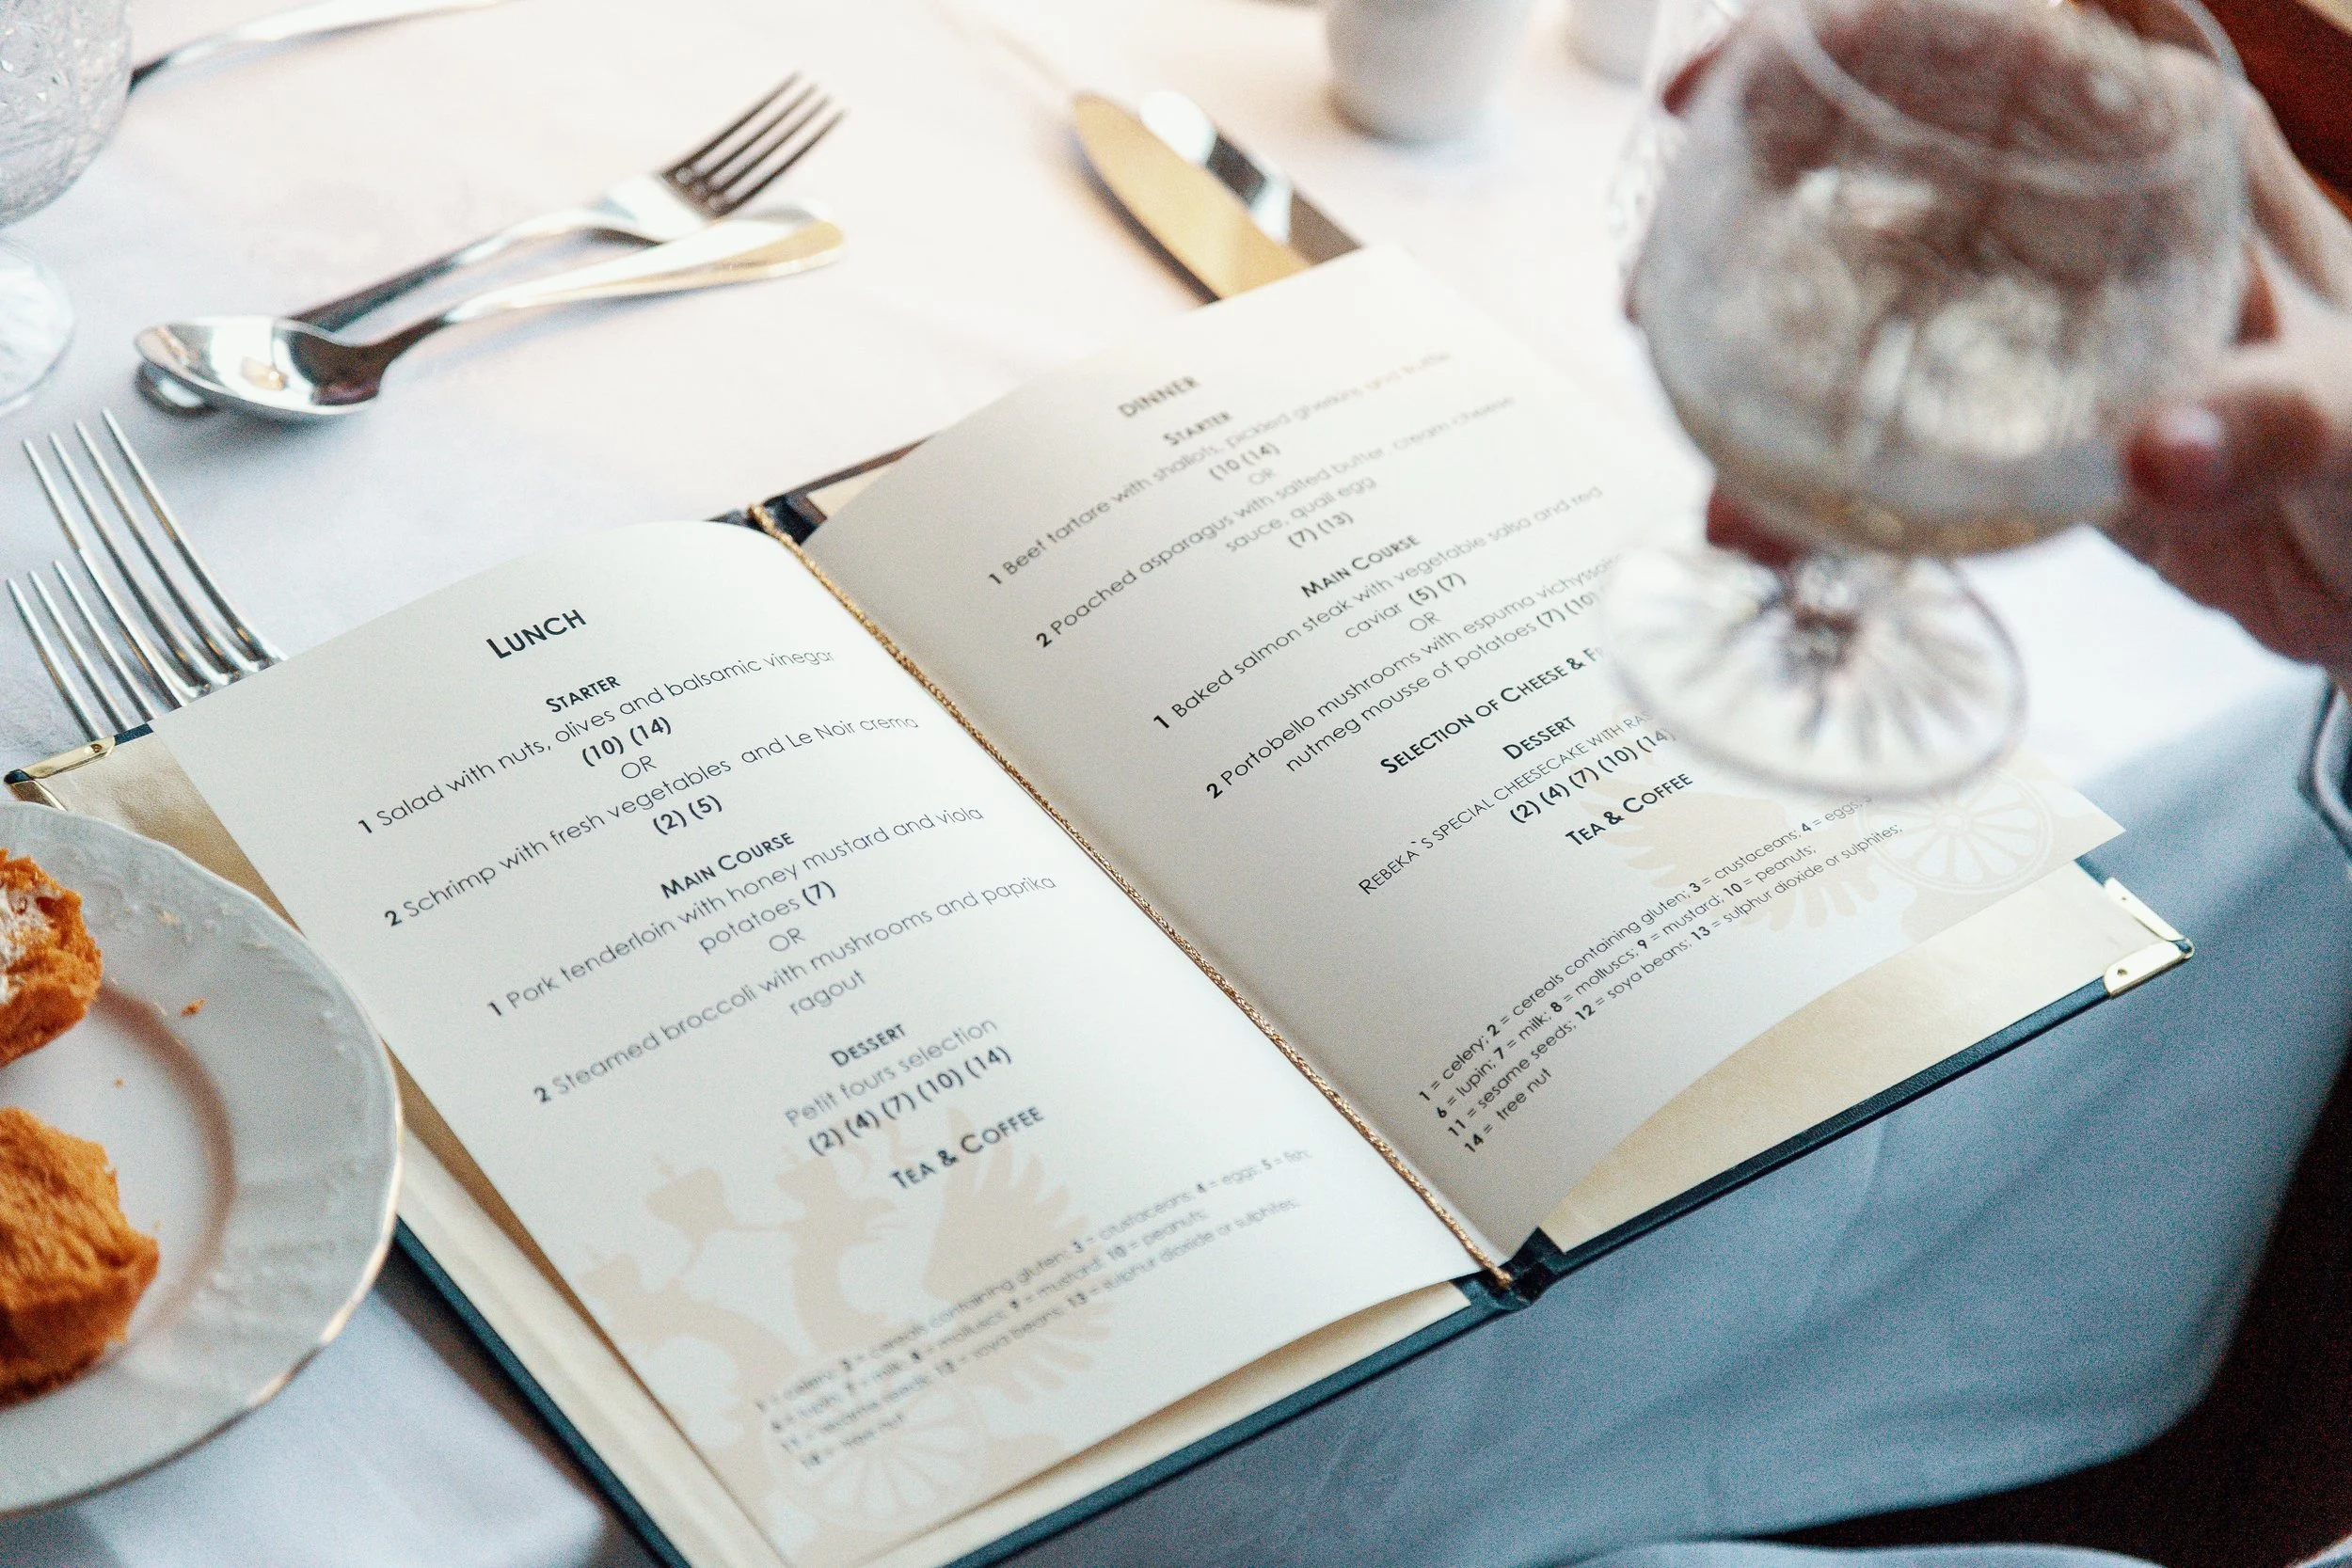 LUNCH
STARTER
1 Salad with nuts, olives and balsamic vinegar
(10) (14)
OR
2 Schrimp with fresh vegetables and Le Noir crema
(2) (5)
MAIN COURSE
1 Pork tenderloin with honey mustard and viola
potatoes (7)
OR
2 Steamed broccoli with mushrooms and paprika
ragout
DESSERT
Petit fours selection
(2) (4) (7) (10) (14)
TEA & COFFEE
1 = celery; 2 = cereals containing gluten; 3 = crustaceans; 4 = eggs; 5 = fish;
6 = lupin; 7 = milk; 8 = molluscs; 9 = mustard; 10 = peanuts;
11 = sesame seeds; 12 = soya beans; 13 = sulphur dioxide or sulphites;
14 = tree nut
DINNER
STARTER
1 Beef tartare with shallots, pickled gherkins and truffle
(10 (14)
OR
2 Poached asparagus with salted butter, cream cheese
sauce, quail egg
(7) (13)
MAIN COURSE
1 Baked salmon steak with vegetable salsa and red
caviar (5) (7)
OR
2 Portobello mushrooms with espuma
nutmeg mousse of potatoes (7) (10)
SELECTION OF CHEESE &
DESSERT
REBEKA`S SPECIAL CHEESECAKE WITH
(2) (4) (7) (10) (14)
TEA & COFFEE
1 = celery; 2 = cereals containing gluten; 3 = crustaceans; 4 = eggs;
6 = lupin; 7 = milk; 8 = molluscs; 9 = mustard; 10 = peanuts;
11 = sesame seeds; 12 = soya beans; 13 = sulphur dioxide or sulphites;
14 = tree nut